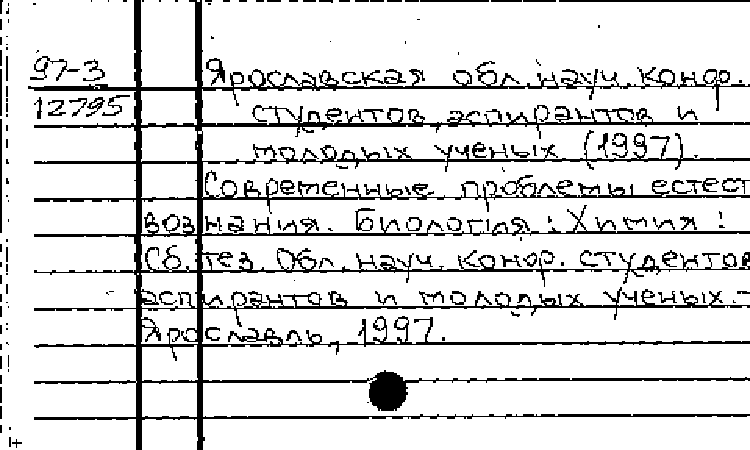 97-3 Ярославская обл. науч. конф.
12795 студентов, аспирантов и
молодых ученых (1997).
Современные проблемы естест
вознания. Биология: Химия:
Сб. тез. Обл. науч. конф. студентов
аспирантов и молодых ученых. -
Ярославль, 1997.